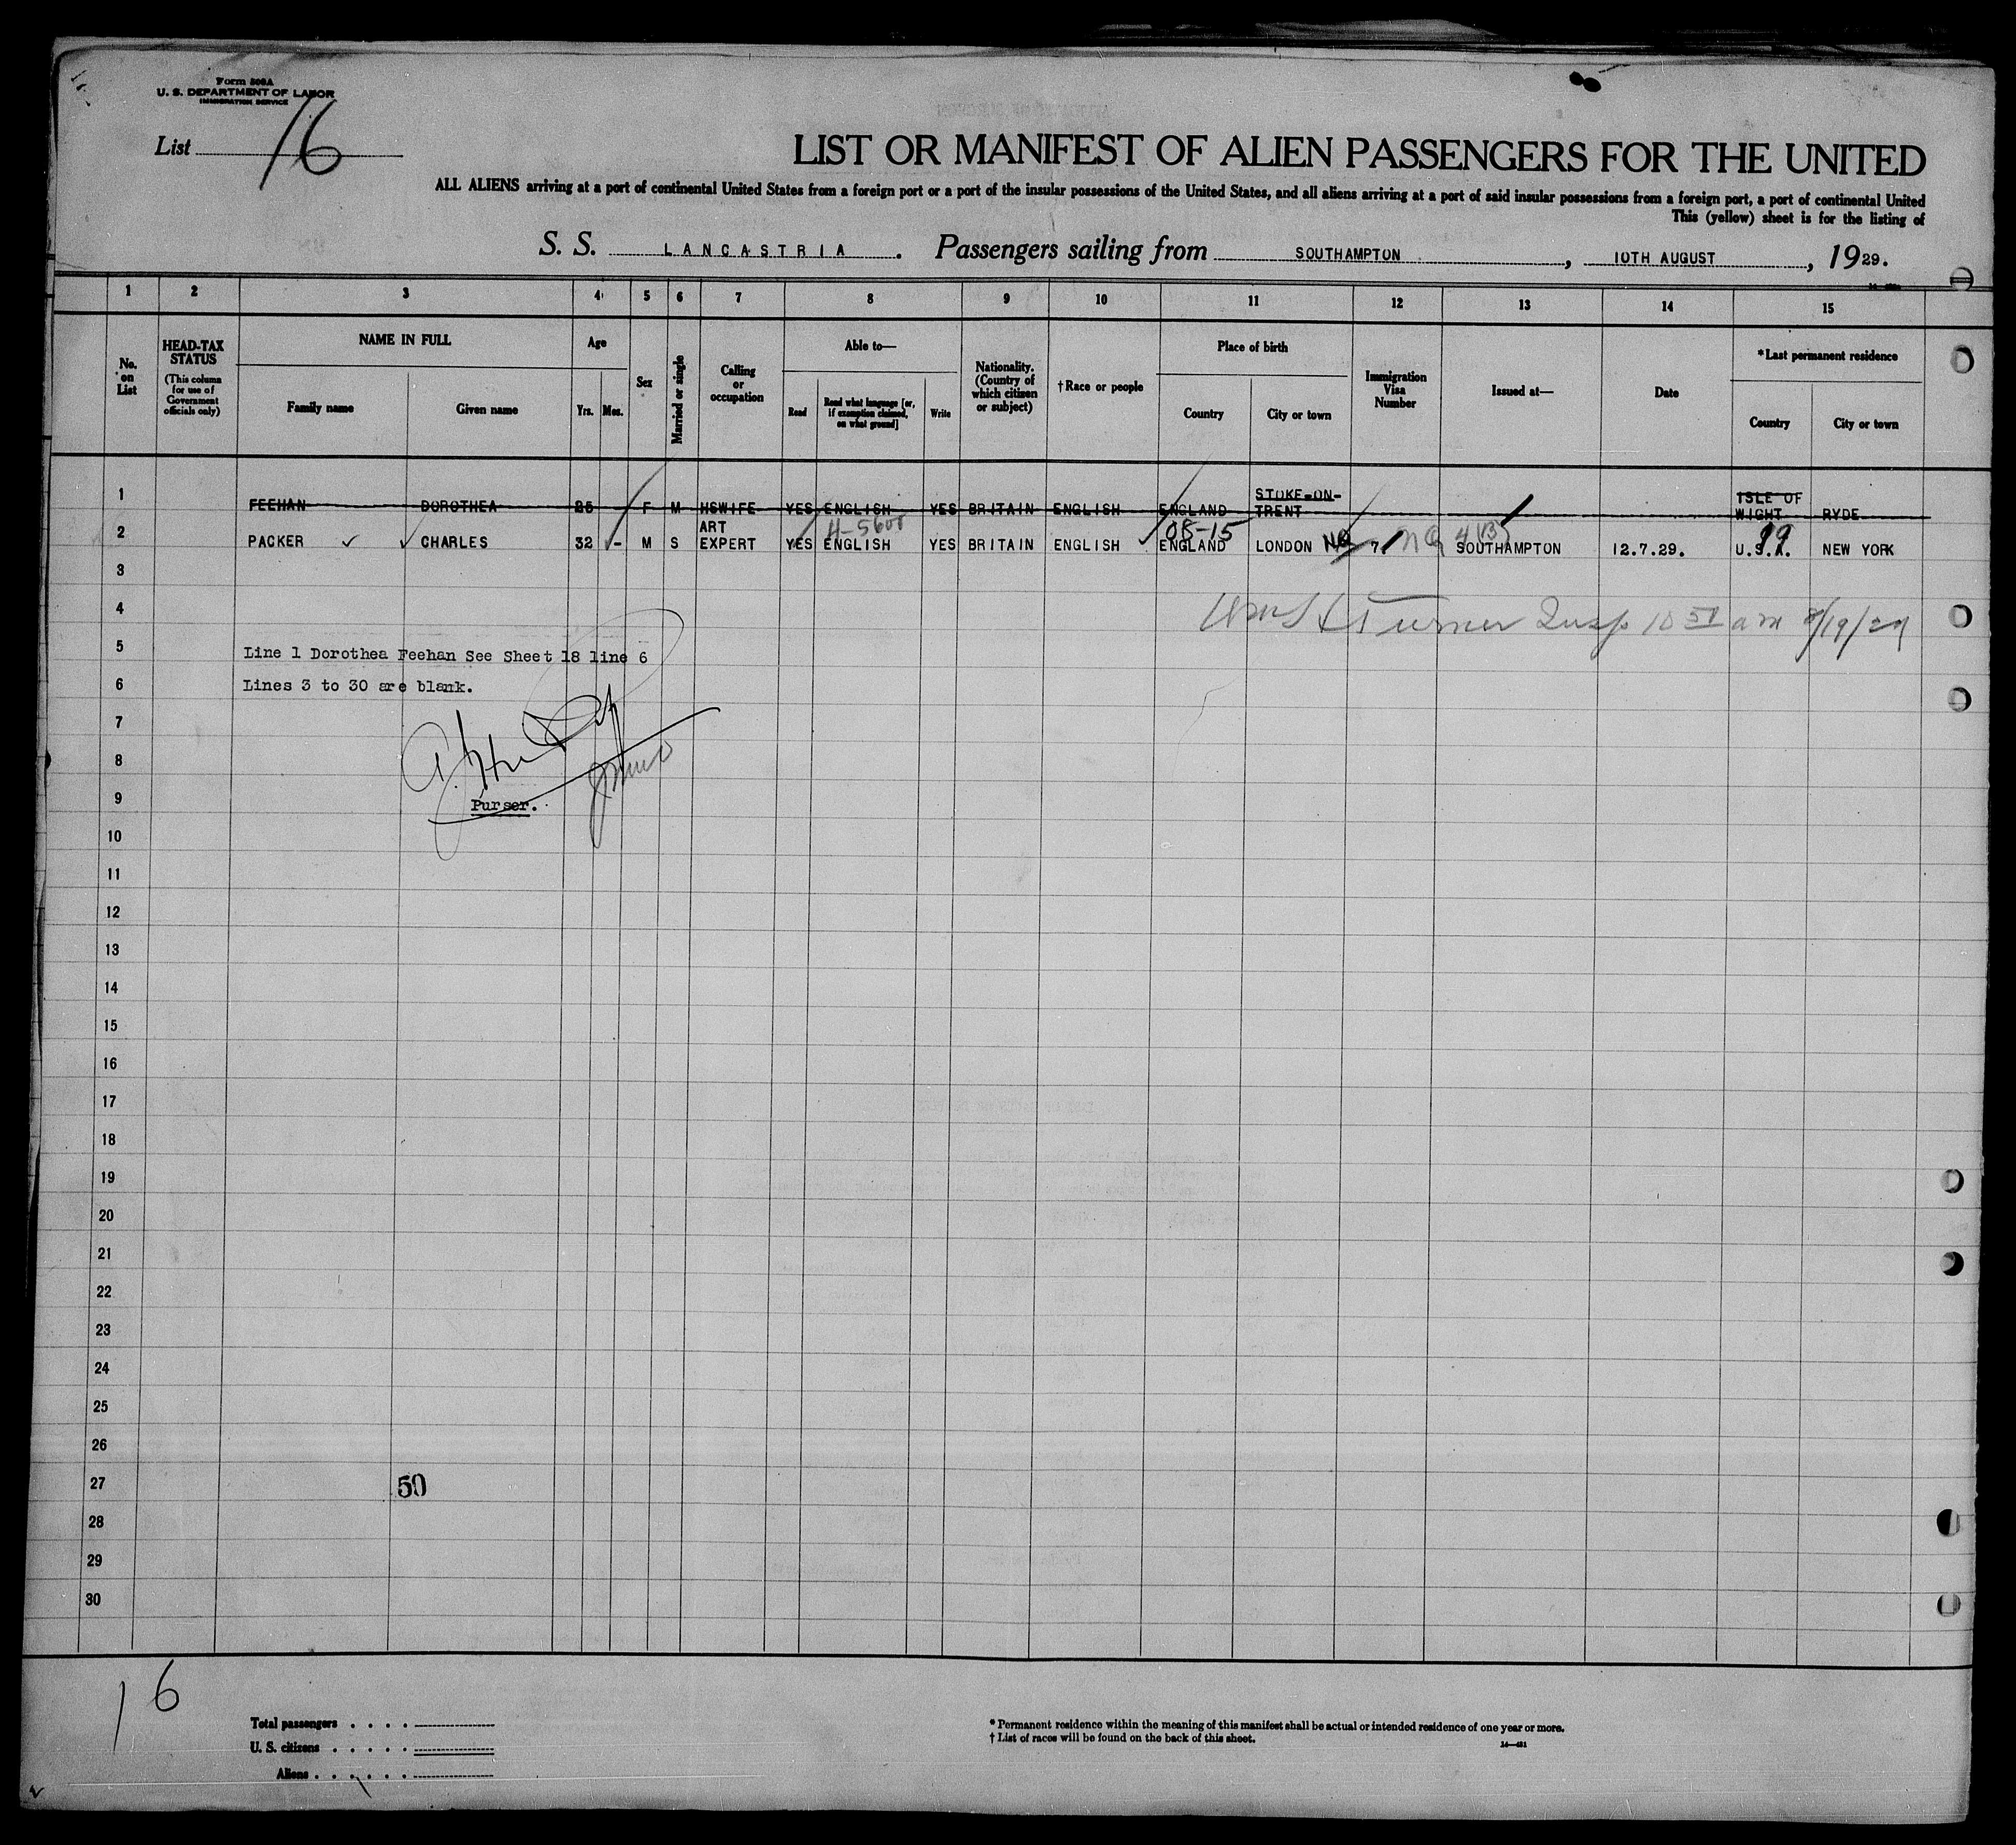 Form 500A
U. S. DEPARTMENT OF LABOR
IMMIGRATION SERVICE
List 16
LIST OR MANIFEST OF ALIEN PASSENGERS FOR THE UNITED
ALL ALIENS arriving at a port of continental United States from a foreign port or a port of the insular possessions of the United States, and all aliens arriving at a port of said insular possessions from a foreign port, a port of continental United
This (yellow) sheet is for the listing of
S. S. LANCASTRIA. Passengers sailing from SOUTHAMPTON, 10TH AUGUST, 1929.
1 2 3 4 5 6 7 8 9 10 11 12 13 14 15
No. on List
HEAD-TAX STATUS
(This column for use of Government officials only)
NAME IN FULL
Family name Given name
Age
Yrs. Mos.
Sex
Married or single
Calling or occupation
Able to—
Read Read what language [or, if exemption claimed, on what ground] Write
Nationality. (Country of which citizen or subject)
†Race or people
Place of birth
Country City or town
Immigration Visa Number
Issued at—
Date
*Last permanent residence
Country City or town
1 FEEHAN DOROTHEA 25 F M HSWIFE YES ENGLISH YES BRITAIN ENGLISH ENGLAND STOKE-ON-TRENT ISLE OF WIGHT RYDE
H-5600 08-15 NQ 4(B) 99
2 PACKER CHARLES 32 - M S ART EXPERT YES ENGLISH YES BRITAIN ENGLISH ENGLAND LONDON NQ 71 SOUTHAMPTON 12.7.29. U.S.A. NEW YORK
3
4
Turner Insp 10 51 am 8/19/29
5
Line 1 Dorothea Feehan See Sheet 18 line 6
6
Lines 3 to 30 are blank.
7
8
9
Purser.
10
11
12
13
14
15
16
17
18
19
20
21
22
23
24
25
26
27
50
28
29
30
16
Total passengers . . . .
U. S. citizens . . . . .
Aliens . . . . . .
* Permanent residence within the meaning of this manifest shall be actual or intended residence of one year or more.
† List of races will be found on the back of this sheet.
14—481